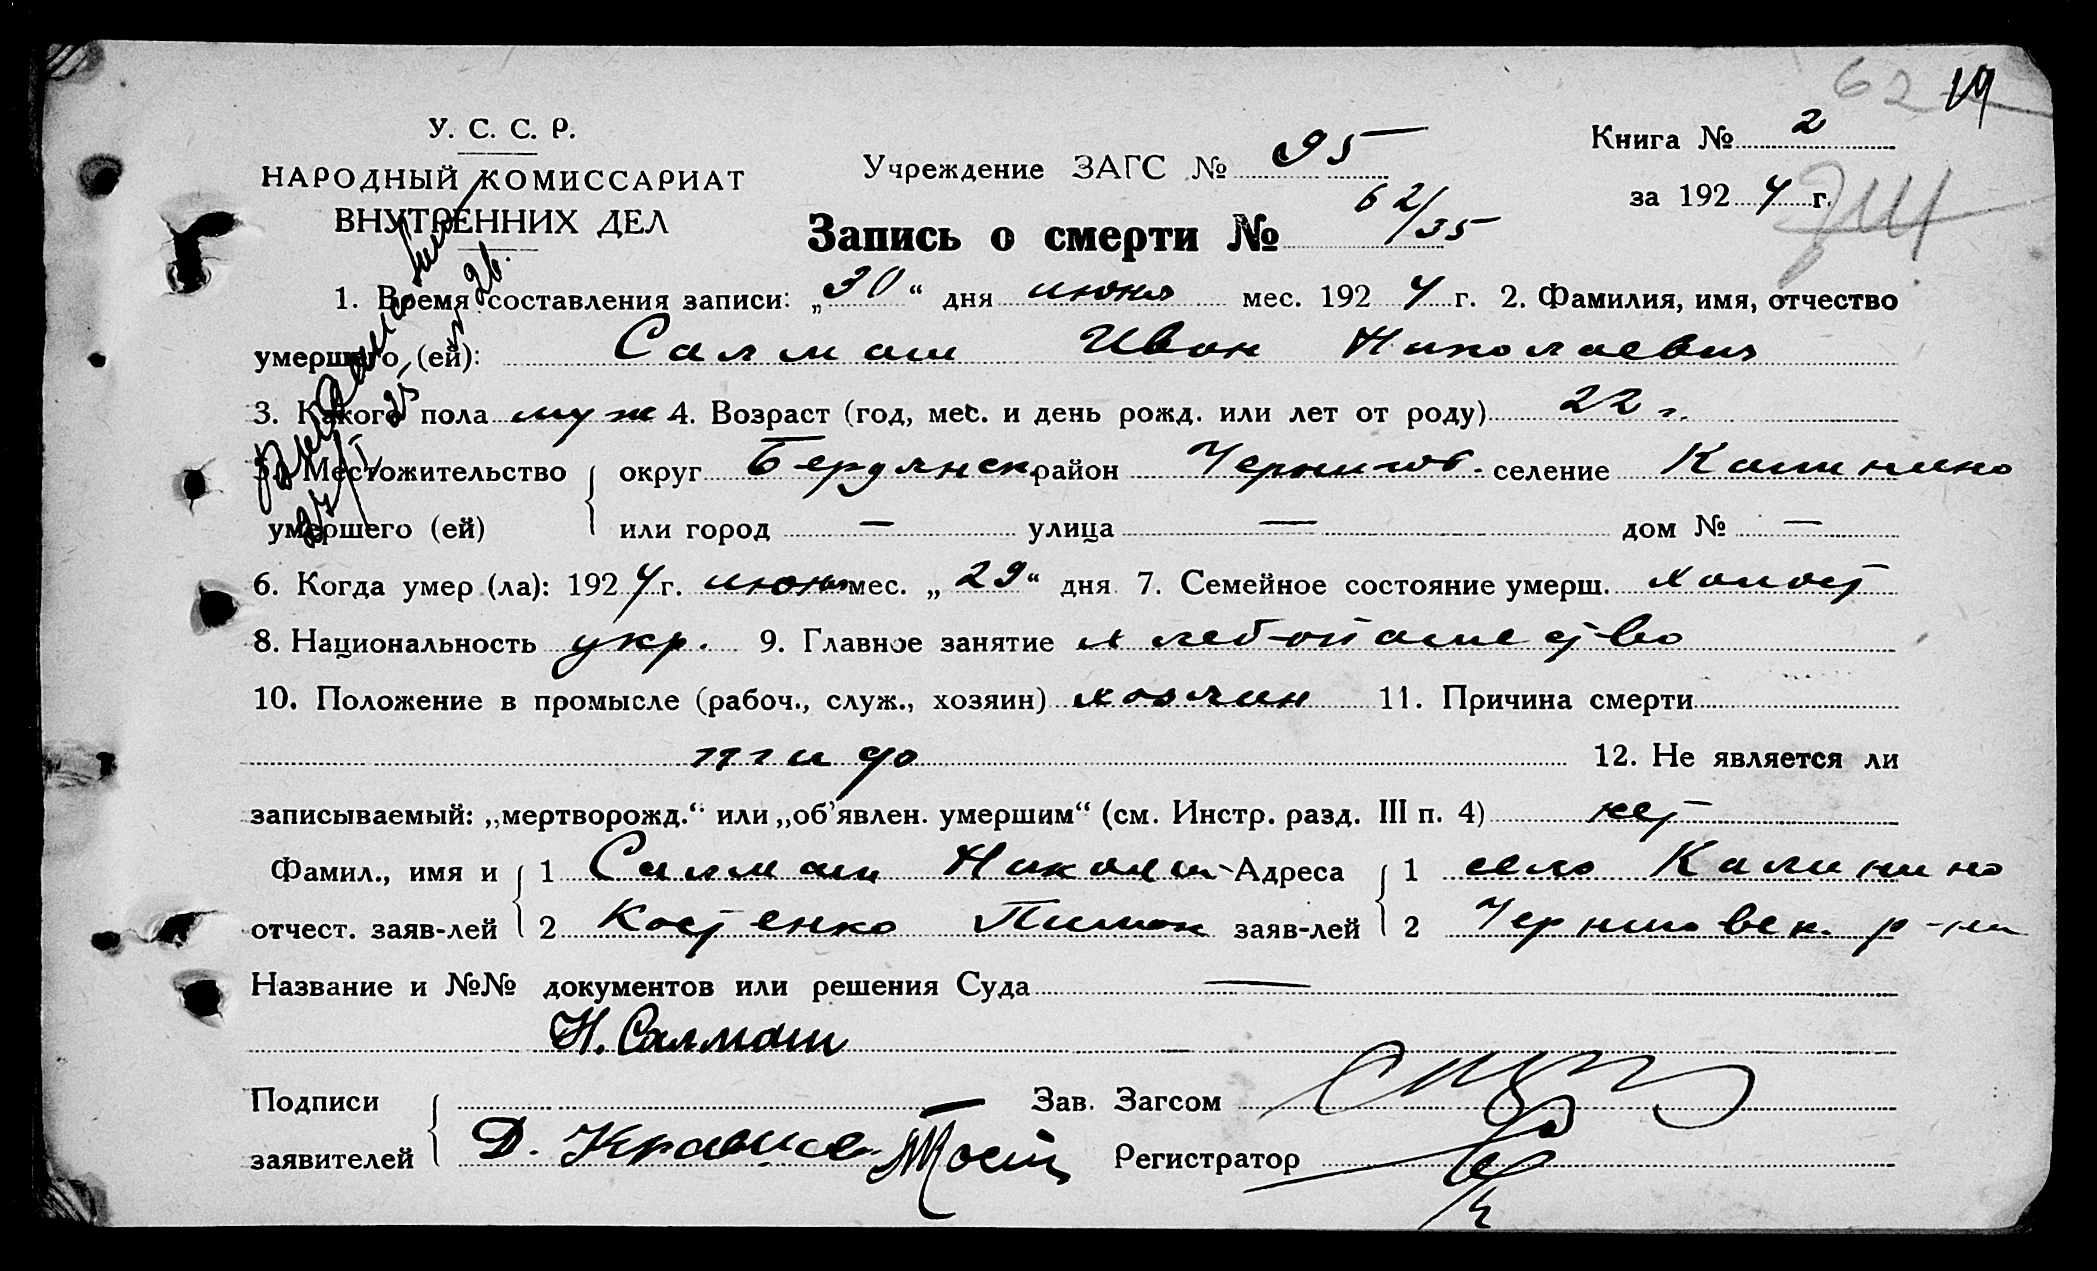 62 19
У. С. С. Р.
НАРОДНЫЙ КОМИССАРИАТ
ВНУТРЕННИХ ДЕЛ
Учреждение ЗАГС № 95
Книга № 2
за 1924 г.
Запись о смерти № 62/35
1. Время составления записи: „30“ дня июня мес. 1924 г. 2. Фамилия, имя, отчество
умершего (ей): Салмаш Иван Николаевич
3. Какого пола муж 4. Возраст (год, мес. и день рожд. или лет от роду) 22 г.
5. Местожительство округ Бердянск район Чернигов. селение Калинино
умершего (ей) или город — улица — дом № —
6. Когда умер (ла): 1924 г. июня мес. „29“ дня 7. Семейное состояние умерш. холост
8. Национальность укр. 9. Главное занятие хлебопашество
10. Положение в промысле (рабоч., служ., хозяин) хозяин 11. Причина смерти
12. Не является ли
записываемый: „мертворожд.“ или „об'явлен. умершим“ (см. Инстр. разд. III п. 4) нет
Фамил., имя и 1 Салмаш Николай Адреса 1 село Калинино
отчест. заяв-лей 2 Костенко Пимон заяв-лей 2 Черниговск. р-на
Название и №№ документов или решения Суда —
Н. Салмаш
Подписи Зав. Загсом
заявителей Д. Регистратор